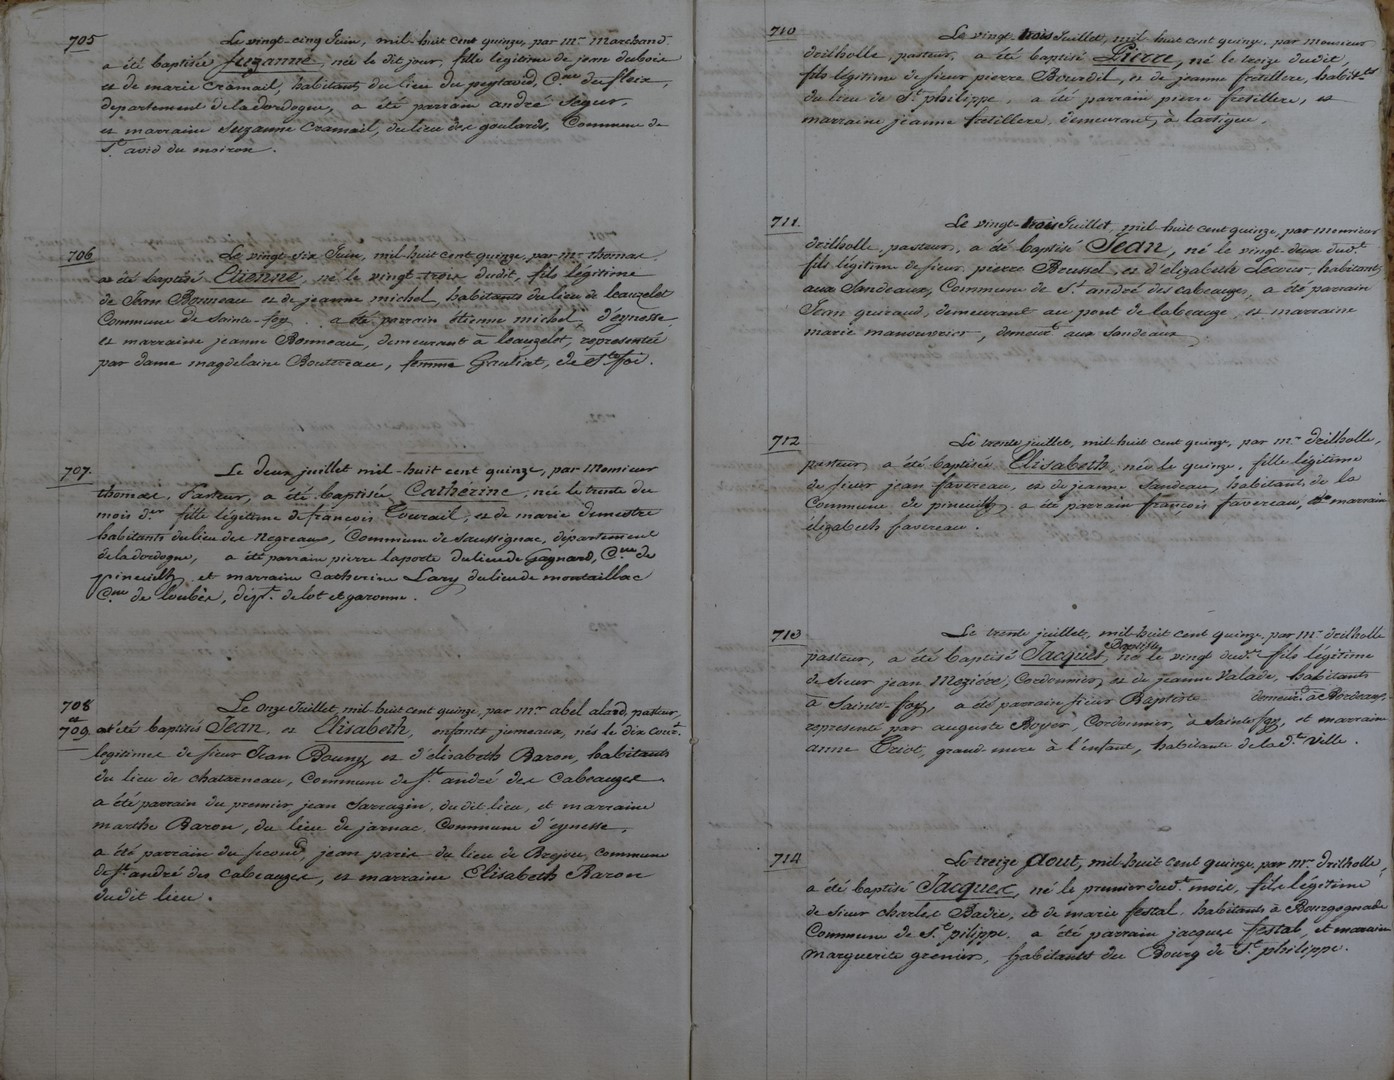 705
Le vingt-cinq Juin, mil-huit cent quinze, par mr. marchand
a été baptisée Suzanne, née le dit jour, fille légitime de jean dubois
et de marie cramail, habitants du lieu du peytaud, Cne. du fleix,
département de la dordogne, a été parrain andré Segur,
et marraine Suzanne Cramail, du lieu des goulards, Commune de
St. avid du moiron.
706
Le vingt-six Juin, mil-huit cent quinze, par mr. thomas
a été baptisé Etienne, né le vingt-trois dudit, fils légitime
de Jean Bonneau et de jeanne michel, habitants du lieu de leauzelet
Commune de Sainte-foy, a été parrain étienne michel, d'eynesse,
et marraine jeanne Bonneau, demeurant a leauzelet, représentée
par dame magdelaine Boutereau, femme Gauliat, de Ste. foi.
707
Le deux juillet mil-huit cent quinze, par Monsieur
thomas, Pasteur, a été baptisée Catherine, née le trente du
mois der. fille légitime de françois Tourail, et de marie demestre
habitants du lieu des Negreaux, Commune de Saussignac, département
de la dordogne, a été parrain pierre laporte du lieu de Gagnard, Cne. de
pineuilh, et marraine Catherine Lary du lieu de montaillac
Cne. de loubès, dépt. de lot et garonne.
708
et
709
Le Onze Juillet, mil-huit cent quinze, par mr. abel alard, pasteur,
a été baptisés Jean, et Elisabeth, enfants jumeaux, nés le dix cour.t
legitimes de sieur Jean Bouny et d'élisabeth Baron, habitants
du lieu de chatarneau, Commune de St. andré des Cabeauzes.
a été parrain du premier, jean Sarrazin, du dit lieu, et marraine
marthe Baron, du lieu de jarnac, Commune d'eynesse.
a été parrain du second, jean paris du lieu de Brejou, commune
de St. andré des Cabeauzes, et marraine Elisabeth Baron
dudit lieu.
710
Le vingt-trois Juillet, mil-huit cent quinze, par monsieur
drilholle, pasteur, a été baptisé Pierre, né le treize dudit,
fils légitime de sieur pierre Bourdil, et de jeanne fretillere, habitts
du lieu de St. philippe, a été parrain pierre fretillere, et
marraine jeanne fretillere, demeurant, à lartigue.
711
Le vingt-trois Juillet, mil-huit cent quinze, par monsieur
drilholle, pasteur, a été baptisé Jean, né le vingt-deux dudt.
fils légitime de sieur pierre Boussel, et d'élizabeth Lacour, habitants
aux Sandeaux, Commune de St. andré des cabeauzes, a été parrain
Jean guiraud, demeurant au pont de la beauze, et marraine
marie manouvrier, demeurt. aux Sandeaux.
712
Le trente juillet, mil-huit cent quinze, par mr. drilholle,
pasteur, a été baptisée Elisabeth, née le quinze, fille légitime
de sieur jean favereau, et de jeanne Sandeau, habitants de la
Commune de pineuilh, a été parrain françois favereau, et marraine
elizabeth favereau.
713
Le trente juillet, mil-huit cent quinze, par mr. drilholle
pasteur, a été baptisé Jacques Baptiste, né le vingt dudt. fils légitime
de sieur jean Meziere, Cordonnier, et de jeanne Valade, habitants
à Sainte-foy, a été parrain sieur Baptiste demeurt. a Bordeaux,
représenté par auguste Royer, Cordonnier, à Sainte foy, et marraine
anne Triot, grand-mere à l'enfant, habitante de la dte. Ville.
714
Le treize aout, mil-huit cent quinze, par mr. drilholle,
a été baptisé Jacques, né le premier dudt. mois, fils légitime
de sieur charles Badie, et de marie festal, habitants à Bourgognade
Commune de St. pilippe, a été parrain jacques festal, et marraine
Marguerite grenier, habitants du Bourg de St. philippe.